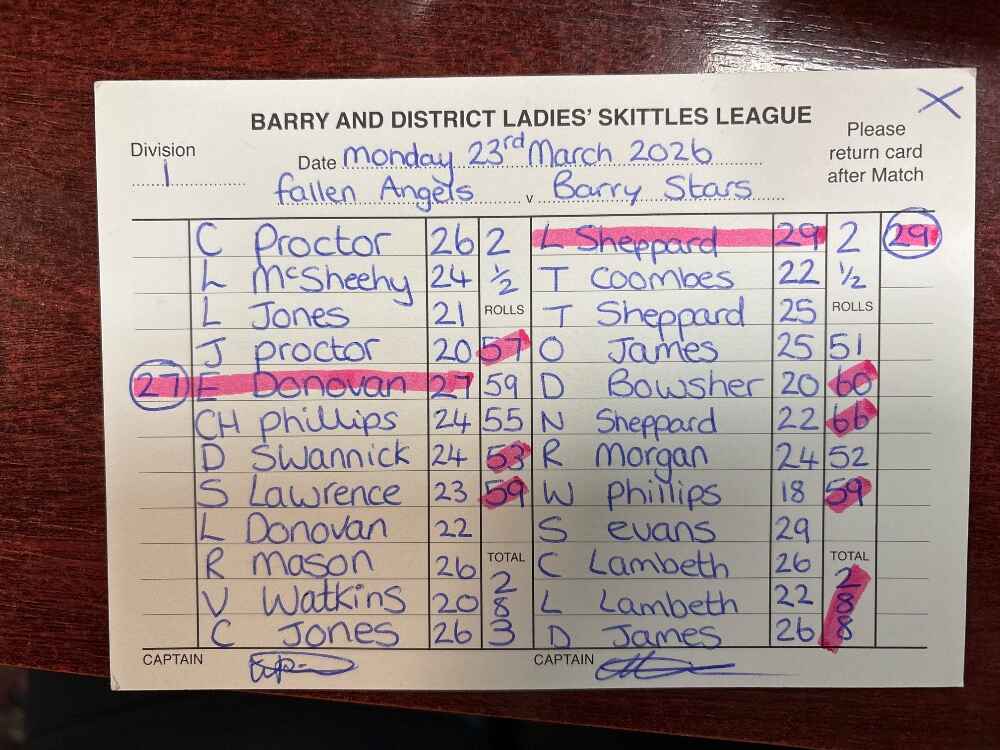 BARRY AND DISTRICT LADIES' SKITTLES LEAGUE
Division 1
Date Monday 23rd March 2026
Please return card after Match
X
Fallen Angels v Barry Stars
C Proctor 26 2 L Sheppard 29 2 29
L McSheehy 24 1/2 T Coombes 22 1/2
L Jones 21 ROLLS T Sheppard 25 ROLLS
J Proctor 20 57 O James 25 51
27 E Donovan 27 59 D Bowsher 20 60
CH Phillips 24 55 N Sheppard 22 66
D Swannick 24 53 R Morgan 24 52
S Lawrence 23 59 W Phillips 18 59
L Donovan 22 S evans 29
R Mason 26 TOTAL 2 C Lambeth 26 TOTAL 2
V Watkins 20 8 L Lambeth 22 8
C Jones 26 3 D James 26 8
CAPTAIN CAPTAIN